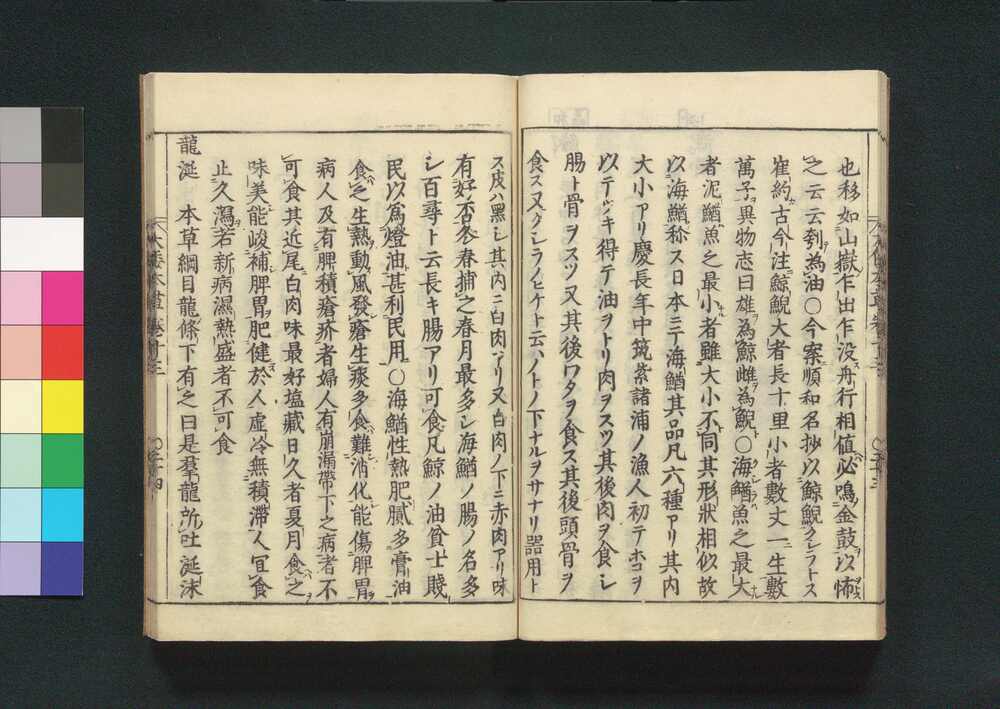 也移如山嶽乍出乍没舟行相値必鳴金鼓以怖
之云云刳為油〇今案順和名抄以鯨鯢クシラトス
崔約古今注鯨鯢大者長十里小者數丈一生數
萬子異物志曰雄為鯨雌為鯢〇海鰌魚之最大
者泥鰌魚之最小者雖大小不同其形狀相似故
以海鰌称ス日本ニテ海鰌其品凡六種アリ其内
大小アリ慶長年中筑紫諸浦ノ漁人初テホコヲ
以テツキ得テ油ヲトリ肉ヲスツ其後肉ヲ食シ
腸ト骨ヲスツ又其後ワタヲ食ス其後頭骨ヲ
食ス又クシラノヒケト云ハノトノ下ナルヲサナリ器用ト
ス皮ハ黑シ其内ニ白肉アリ又白肉ノ下ニ赤肉アリ味
有好否冬春捕之春月最多シ海鰌ノ腸ノ名多
シ百尋ト云長キ腸アリ可食凡鯨ノ油貧士賤
民以為燈油甚利民用〇海鰌性熱肥膩多膏油
食之生熱動風發瘡生痰多食難消化能傷脾胃
病人及有脾積瘡疥者婦人有崩漏帶下之病者不
可食其近尾白肉味最好塩藏日久者夏月食之
味美能峻補脾胃肥健於人虚冷無積滯人宜食
止久瀉若新病濕熱盛者不可食
龍涎 本草綱目龍條下有之曰是羣龍所吐涎沫
大倭本草卷十三